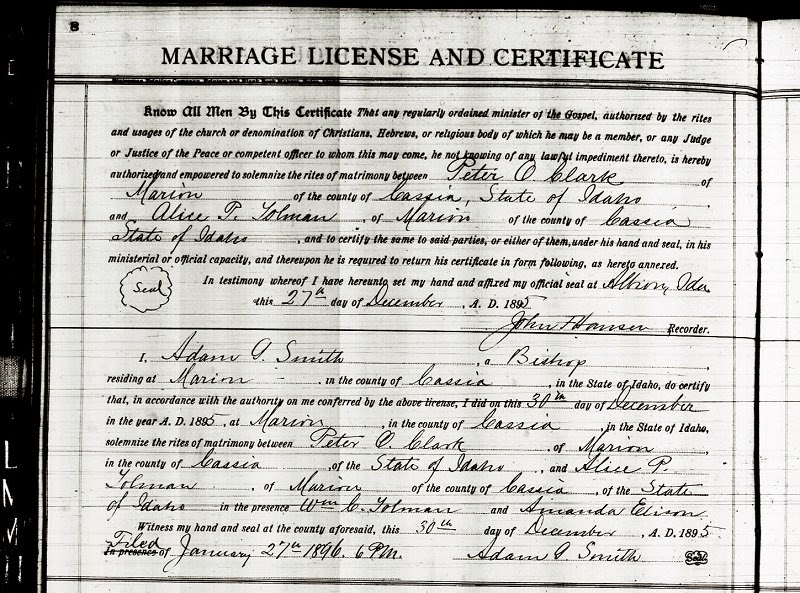 8
MARRIAGE LICENSE AND CERTIFICATE
Know All Men By This Certificate That any regularly ordained minister of the Gospel, authorized by the rites
and usages of the church or denomination of Christians, Hebrews, or religious body of which he may be a member, or any Judge
or Justice of the Peace or competent officer to whom this may come, he not knowing of any lawful impediment thereto, is hereby
authorized and empowered to solemnize the rites of matrimony between Peter O. Clark of
Marion of the county of Cassia, State of Idaho
and Alice P. Tolman, of Marion of the county of Cassia
State of Idaho, and to certify the same to said parties, or either of them, under his hand and seal, in his
ministerial or official capacity, and thereupon he is required to return his certificate in form following, as hereto annexed.
Seal In testimony whereof I have hereunto set my hand and affixed my official seal at Albion, Ida
this 27th day of December, A. D. 1895
John Hansen Recorder.
I, Adam G. Smith, a Bishop,
residing at Marion, in the county of Cassia, in the State of Idaho, do certify
that, in accordance with the authority on me conferred by the above license, I did on this 30th day of December
in the year A. D. 1895, at Marion, in the county of Cassia, in the State of Idaho,
solemnize the rites of matrimony between Peter O. Clark, of Marion
in the county of Cassia, of the State of Idaho, and Alice P.
Tolman of Marion of the county of Cassia, of the State
of Idaho in the presence Wm C. Tolman and Amanda Elison
Witness my hand and seal at the county aforesaid, this 30th day of December, A. D. 1895
Filed
In presence of January 27th 1896. 6 P.M. Adam G. Smith Seal